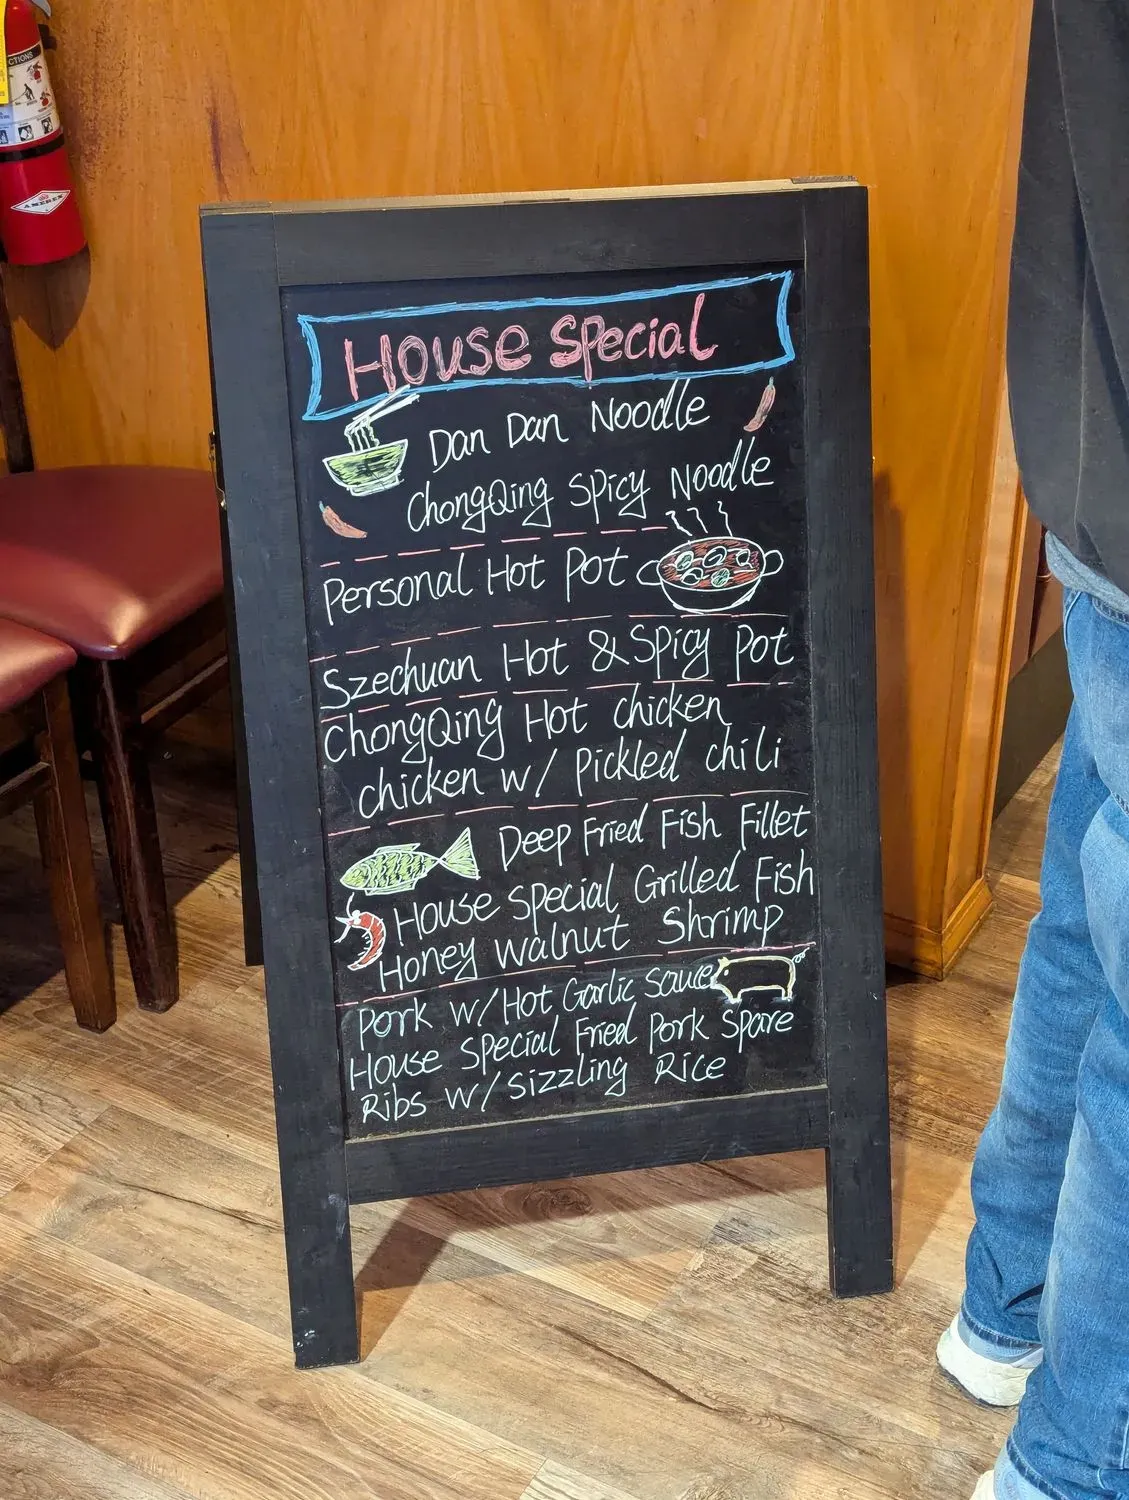 CTIONS
AMEREX
House Special
Dan Dan Noodle
ChongQing Spicy Noodle
Personal Hot Pot
Szechuan Hot & Spicy Pot
ChongQing Hot chicken
chicken w/ Pickled chili
Deep Fried Fish Fillet
House Special Grilled Fish
Honey Walnut Shrimp
Pork w/ Hot Garlic Sauce
House Special Fried Pork Spare
Ribs w/ Sizzling Rice